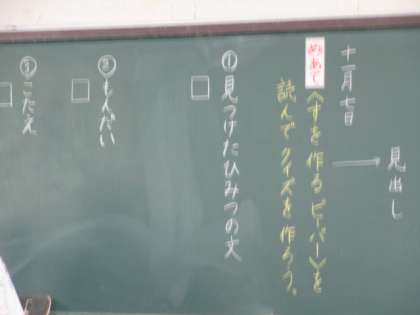 十一月七日
→見出し
めあて
〈すを作るビーバー〉を
読んでクイズを作ろう。
①見つけたひみつの文
②もんだい
③こたえ